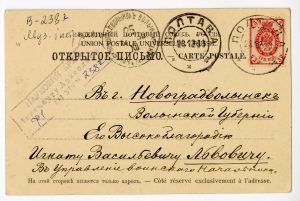 В-238
ВСЕМІРНЫЙ ПОЧТОВЫЙ СОЮЗЪ. РОССІЯ.
UNION POSTALE UNIVERSELLE. RUSSIE.
ОТКРЫТОЕ ПИСЬМО. — CARTE POSTALE.
ПОЛТАВА
ПОЛТАВА
Въ г. Новоградволынскъ
Волынской Губерніи
Его Высокоблагородію
Игнату Васильевичу
Въ Управленіе воинскаго Начальника
На этой сторонѣ пишется только адресъ. — Côté réservé exclusivement à l'adresse.